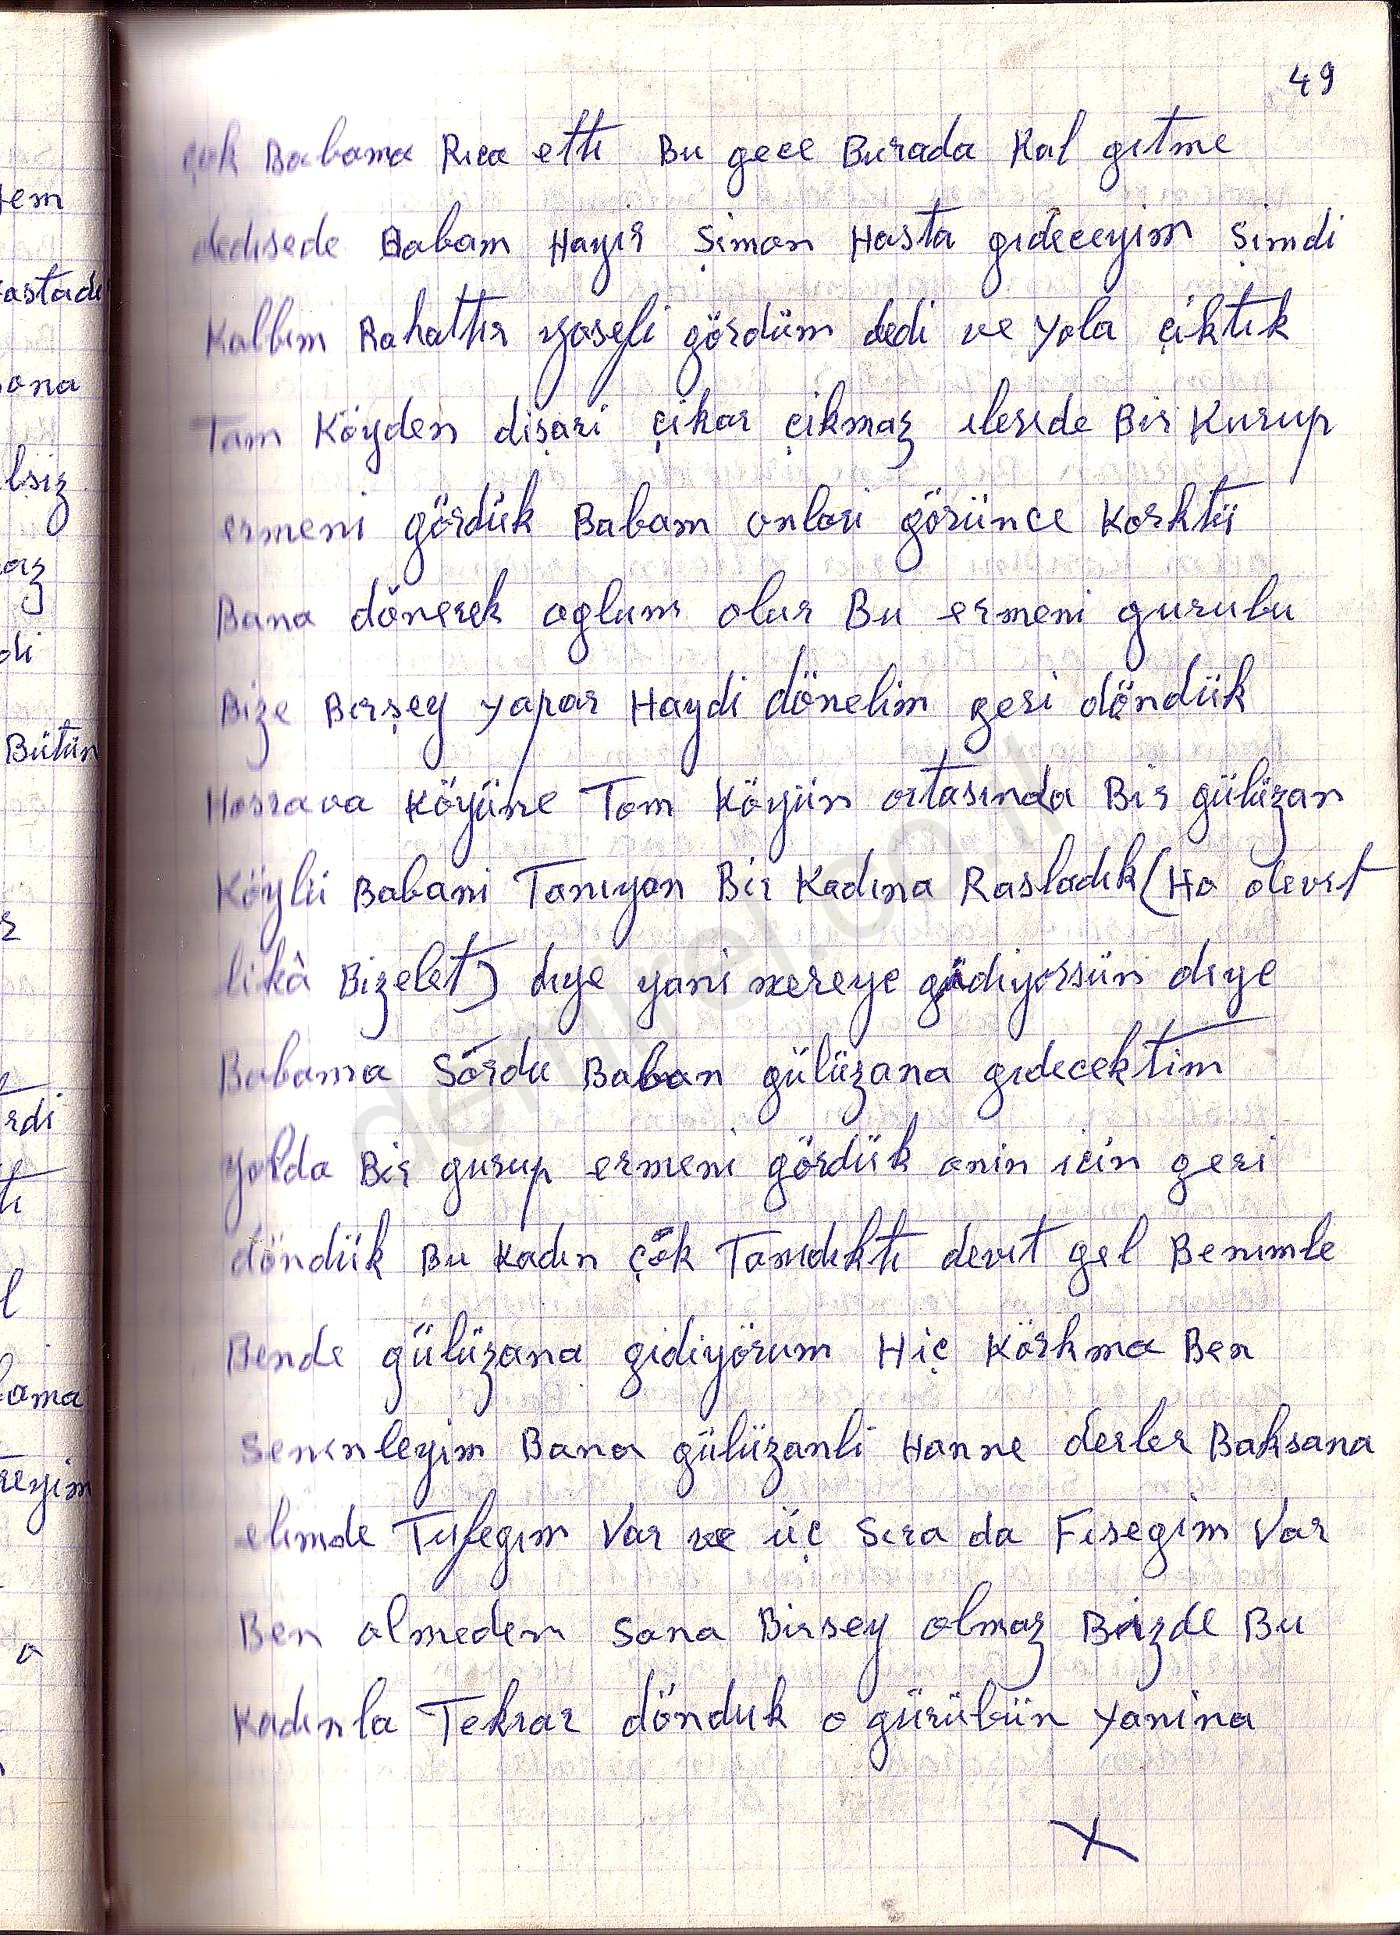 49
çok Babama Rıca ettı Bu gece Burada Kal gıtme
dedısede Babam Hayır Şimon Hasta gıdeceyim Şimdi
Kalbım Rahattır yosefi gördüm dedi ve yola çiktık
Tam Köyden dişari çikar çikmaz ılerıde Bir Kurup
ermeni gördük Babam onlari görünce Korktü
Bana dönerek oglum olur Bu ermeni gurubu
Bize Bırşey yapar Haydi dönelim geri döndük
Hosrava Köyüne Tam Köyün ortasında Bir gülüzan
Köylü Babami Tanıyan Bir Kadına Rasladık (Ho devıt
likâ Bizelet) dıye yani nereye gidiyorsün dıye
Babama Sördu Baban gülüzana gıdecektim
yolda Bir gurup ermeni gördük onin için geri
döndük Bu Kadın çök Tanıdıktı devıt gel Benımle
Bende gülüzana gidiyörum Hiç Körkma Ben
Senınleyim Bana gülüzanli Hanne derler Baksana
elımde Tufegım Var ve üç Sıra da Fısegim Var
Ben olmeden Sana Birsey olmaz Bizde Bu
Kadınla Tekrar dönduk o gürübün yanina
X
em
astadı
ona
lsiz
az
di
Bütün
rdi
tı
l
ama
reyim
a
demirel.co.il